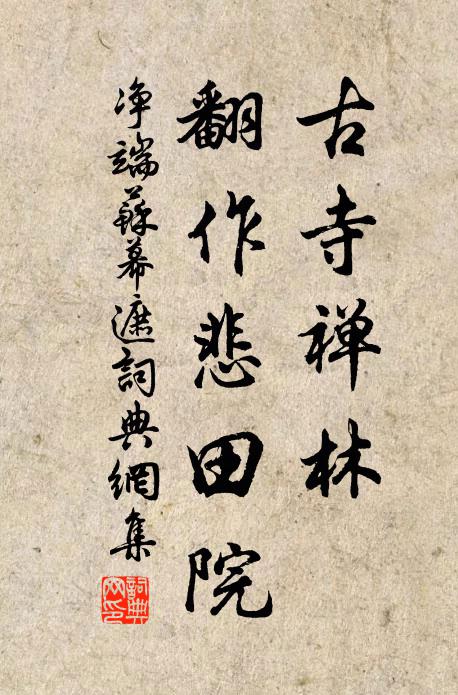 古寺禅林
翻作悲田院
净端蘇幕遮詞典網集
詞典网印